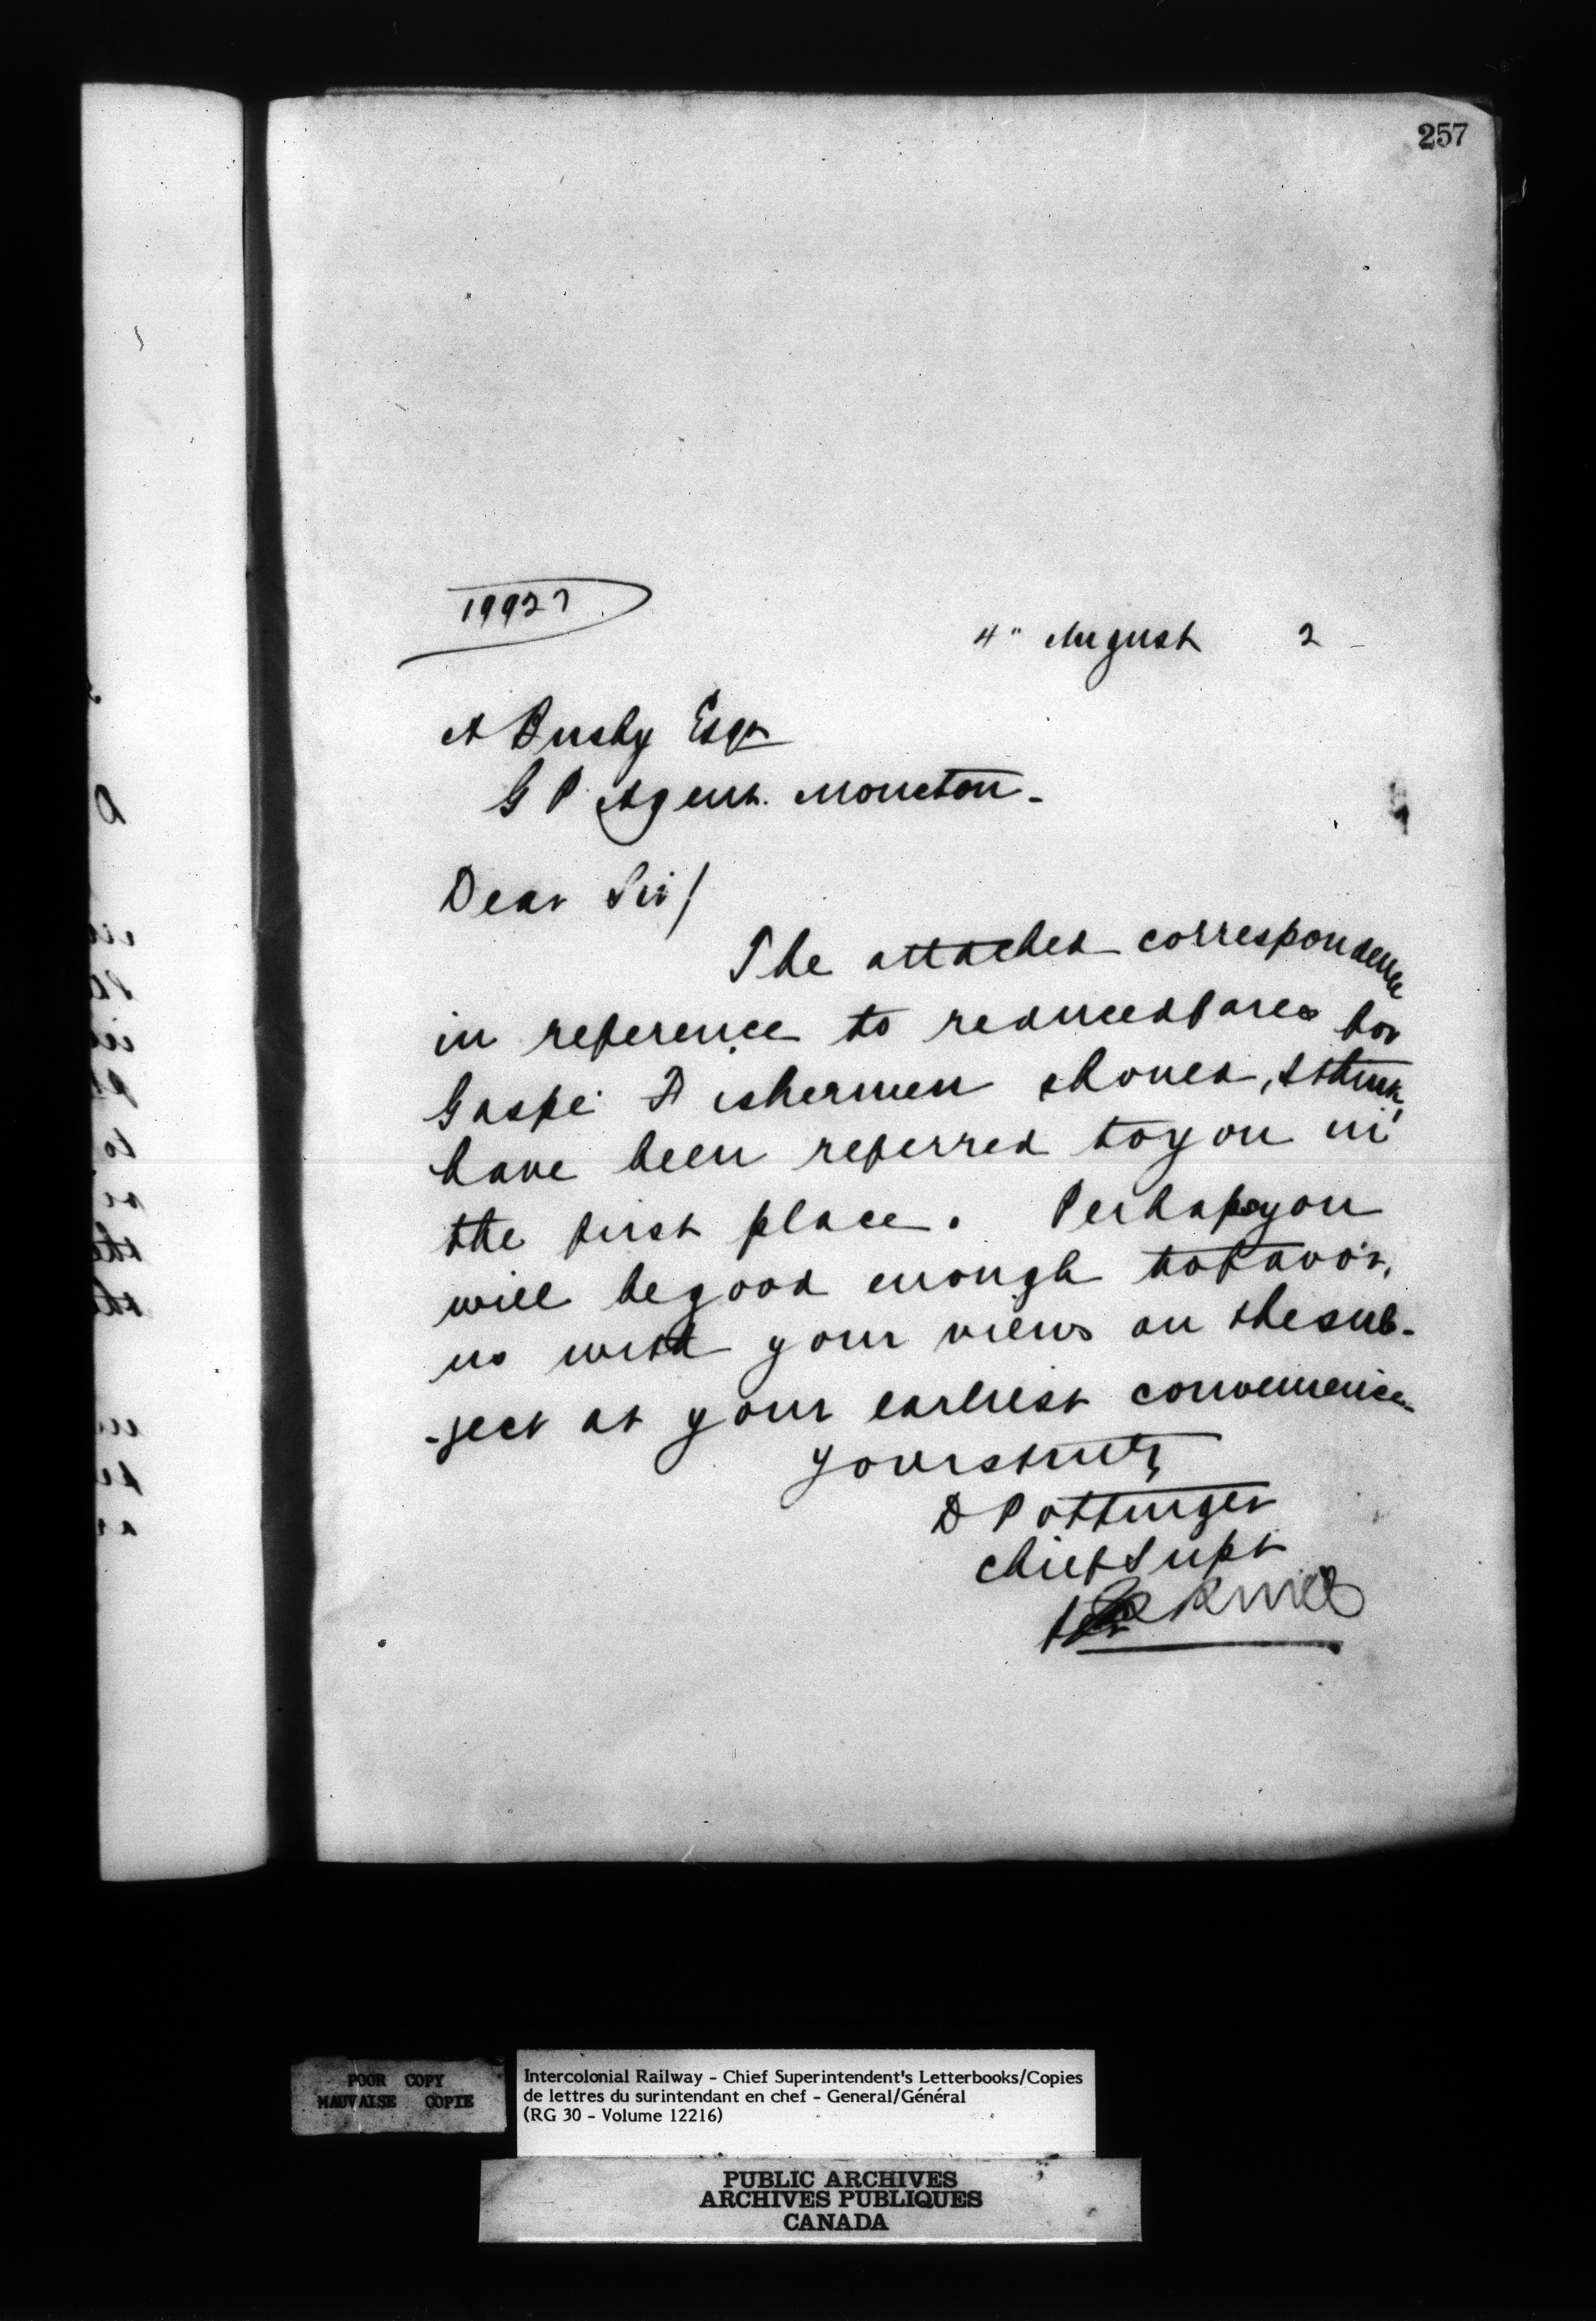 257
19927
4" August 2
A Busby Esqr
G P Agent. Moncton -
Dear Sir/
The attached correspondence
in reference to reduced fares for
Gaspé Fishermen should, I think,
have been referred to you in
the first place. Perhaps you
will be good enough to favor
us with your views on the sub-
-ject at your earliest convenience
Yours truly
D Pottinger
Chief Supt
POOR COPY
MAUVAISE COPIE
Intercolonial Railway - Chief Superintendent's Letterbooks/Copies
de lettres du surintendant en chef - General/Général
(RG 30 - Volume 12216)
PUBLIC ARCHIVES
ARCHIVES PUBLIQUES
CANADA